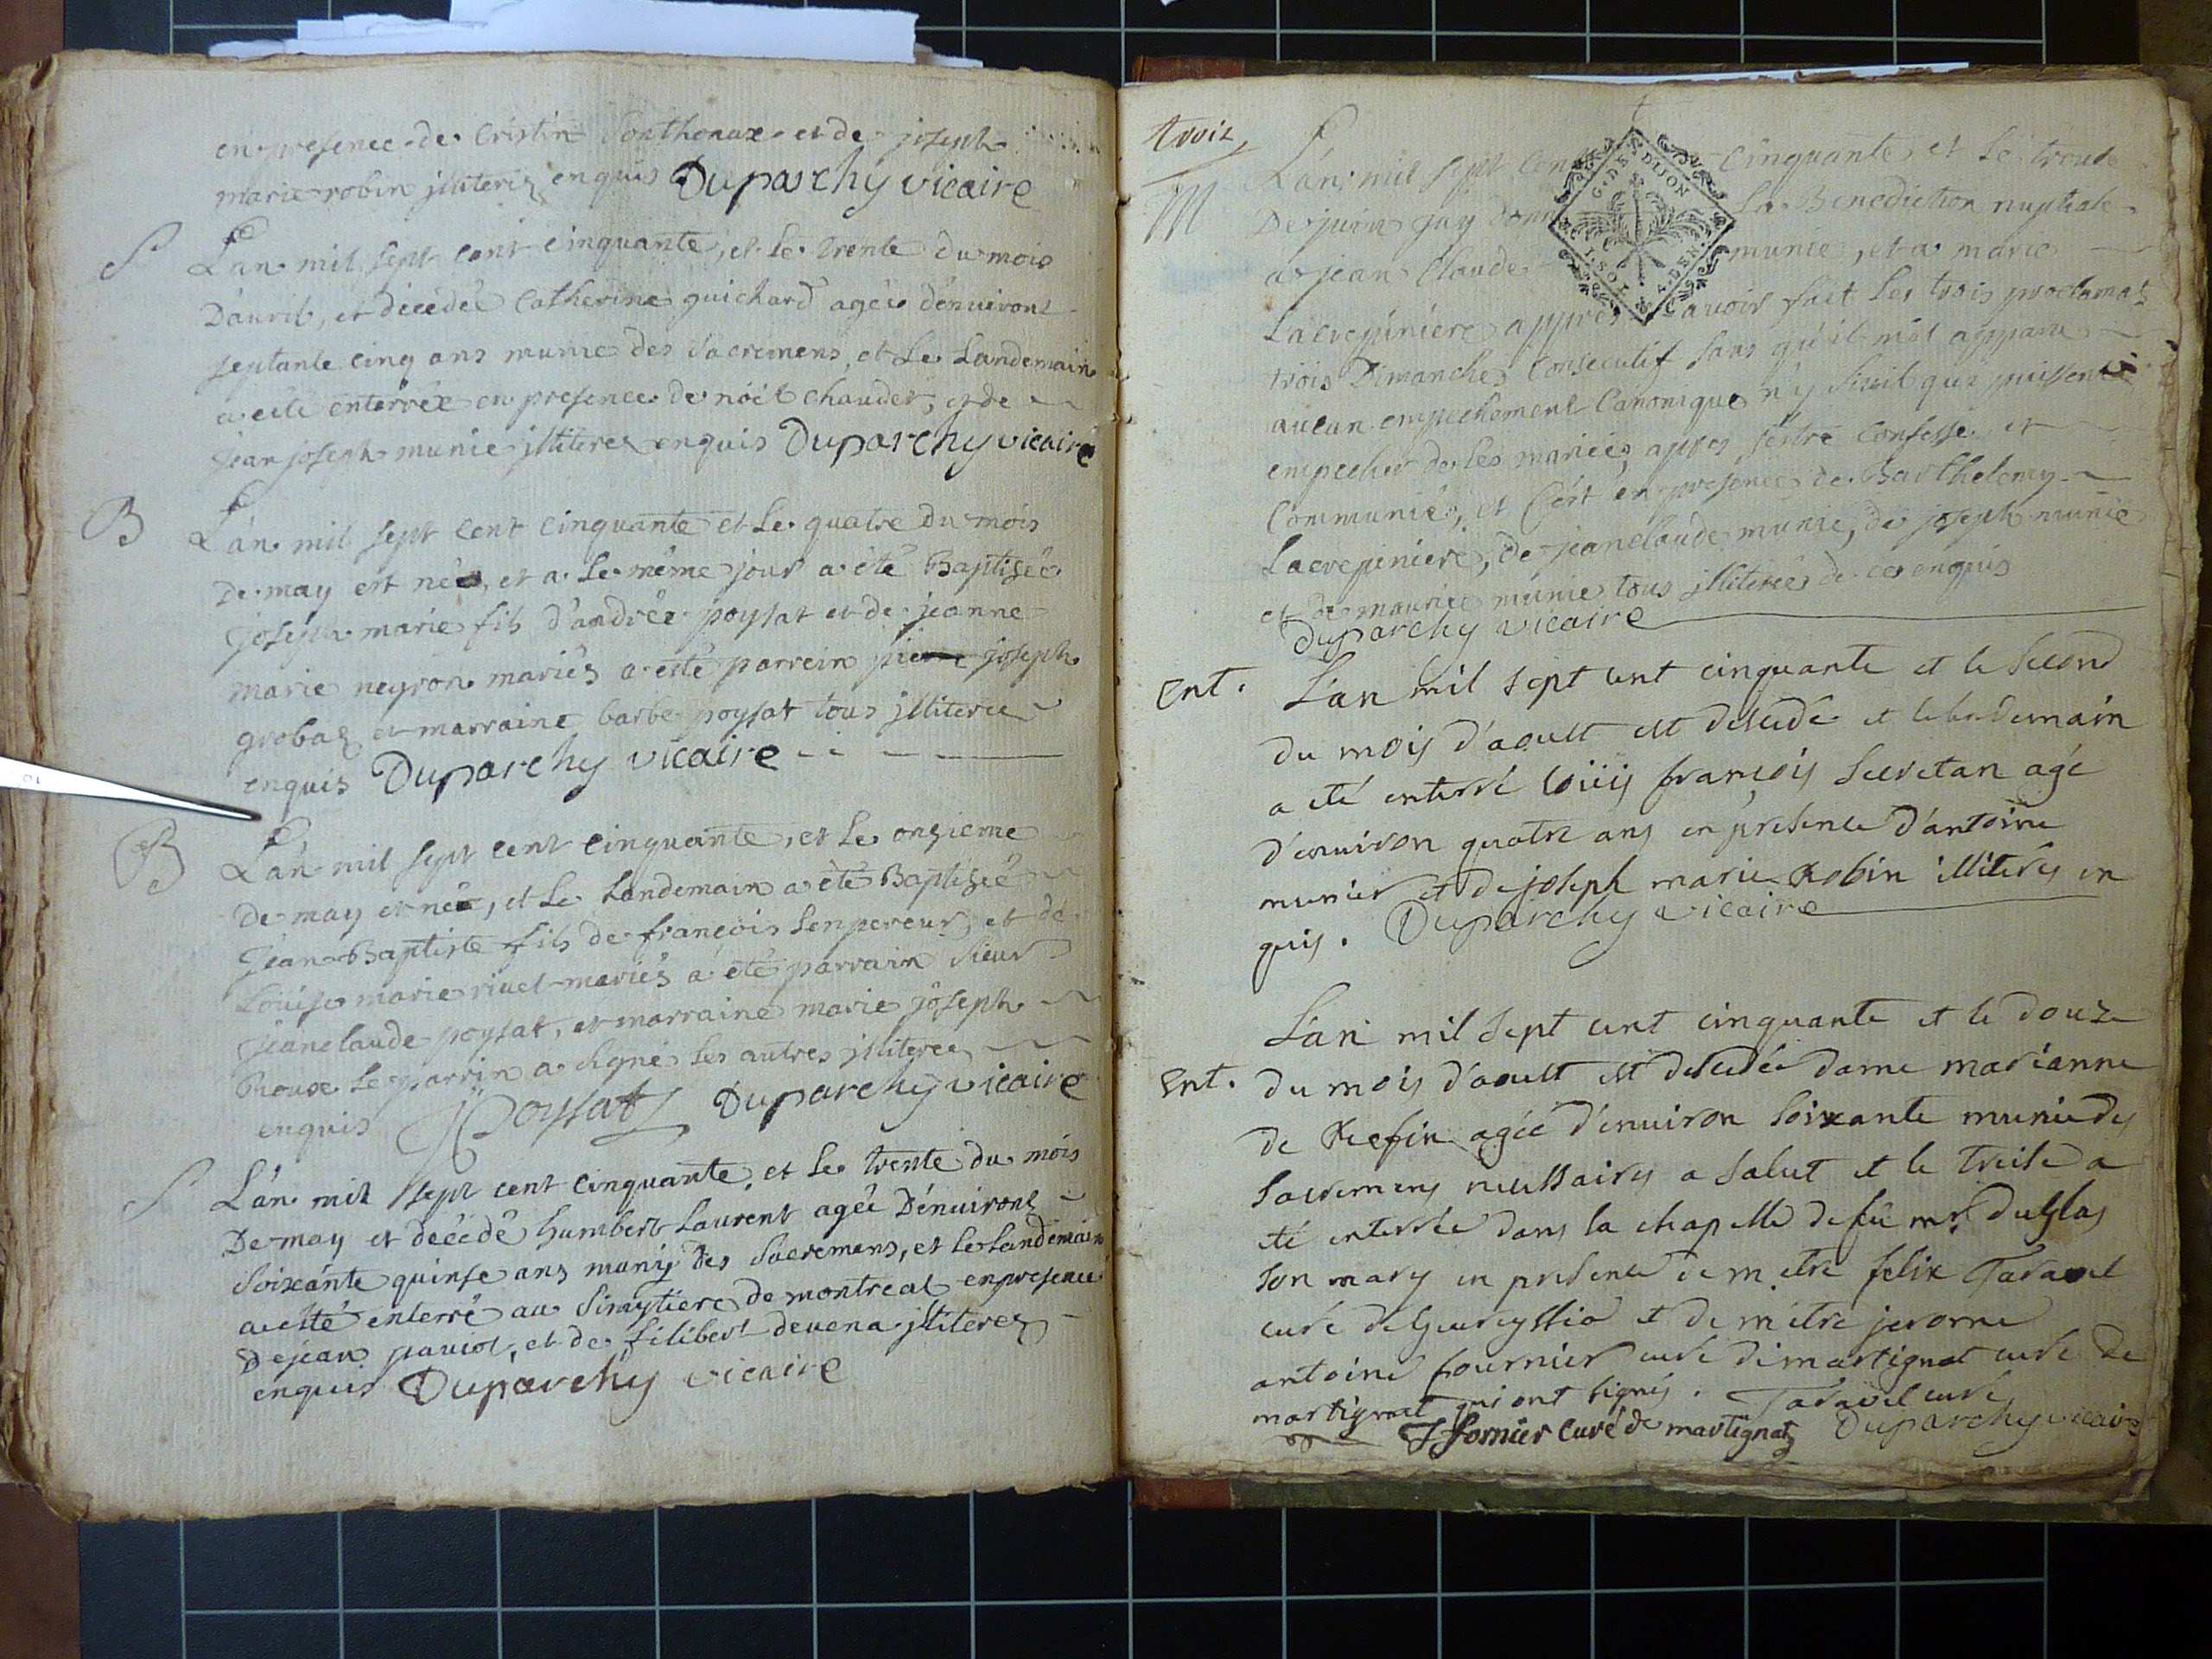 en presence de Cristin Sonthonax et de joseph
marie robin jlliterez enquis Duparchy vicaire
S L'an mil sept cent cinquante, et le trente du mois
D'avril, et décédée Catherine guichard agée d'environt
septante cinq ans munie des sacremens, et le Landemain
a esté enterrée en presence de noël chaudet, et de
jean joseph munie jlliterez enquis Duparchy vicaire
B L'an mil sept cent cinquante et le quatre du mois
De may est né, et a le même jour a été Baptisée
joseph marie fils d'andrée poysat et de jeanne
marie neyron mariés a esté parrein pierre joseph
grobaz et marraine barbe poysat tous jlliteree
enquis Duparchy vicaire
B L'an mil sept cent cinquante, et le onzieme
de may et né, et le Landemain a été Baptisée
Jean Baptiste fils de françois Lenpereur, et de
Loüise marie rivet mariés a été parrain Sieur
jean claude poysat, et marraine marie joseph
Roux le parrin a signé les autres jlliteree
enquis JPoysat Duparchy vicaire
S L'an mil sept cent cinquante et le trente du mois
De may et décédé humbert Laurent agée D'environt
soixante quinse ans muny des sacremens, et le landemain
a esté enterré au simytiere de montreal en presence
De jean paviot, et de filibert devena jlliterez
enquis Duparchy vicaire
trois
G. DES DIJON
1. SOL 4. DEN.
M L'an mil sept cent cinquante et le trente
De juin jay donné la Benediction nuptiale
a jean Claude munie, et a marie
Lacrepiniere appres avoir fait les trois proclamat
trois Dimanches consecutif sans qu'il m'ait apparu
aucun empechement Canonique n'y Sivil qui puissent
empecher de les mariée, appres s'estre confesse et
Communié, et C'est en presence de Barthelemy
Lacrepiniere, de jeanclaude munie, de joseph munie
et de maurice munie tous jlliteree de ce enquis
Duparchy vicaire
Ent. L'an mil sept cent cinquante et le second
du mois d'aoust est decedé et le lendemain
a eté enterré loüis françois secretan agé
d'environ quatre ans en presence d'antoine
munier et de joseph marie Robin illiterés en
quis. Duparchy vicaire
L'an mil sept cent cinquante et le douze
Ent. du mois d'aoust est decedée dame marianne
de agée d'environ soixante munie des
sacremens necessaires a salut et le treise a
eté enterrée dans la chapelle de fû mr. Duglas
son mary en presence de m.etre felix Taravel
curé de et de m.etre jerome
antoine fournier curé de martignat curé de
martignat qui ont signés. Taravel curé
J fornier Curé de martignat Duparchy vicaire